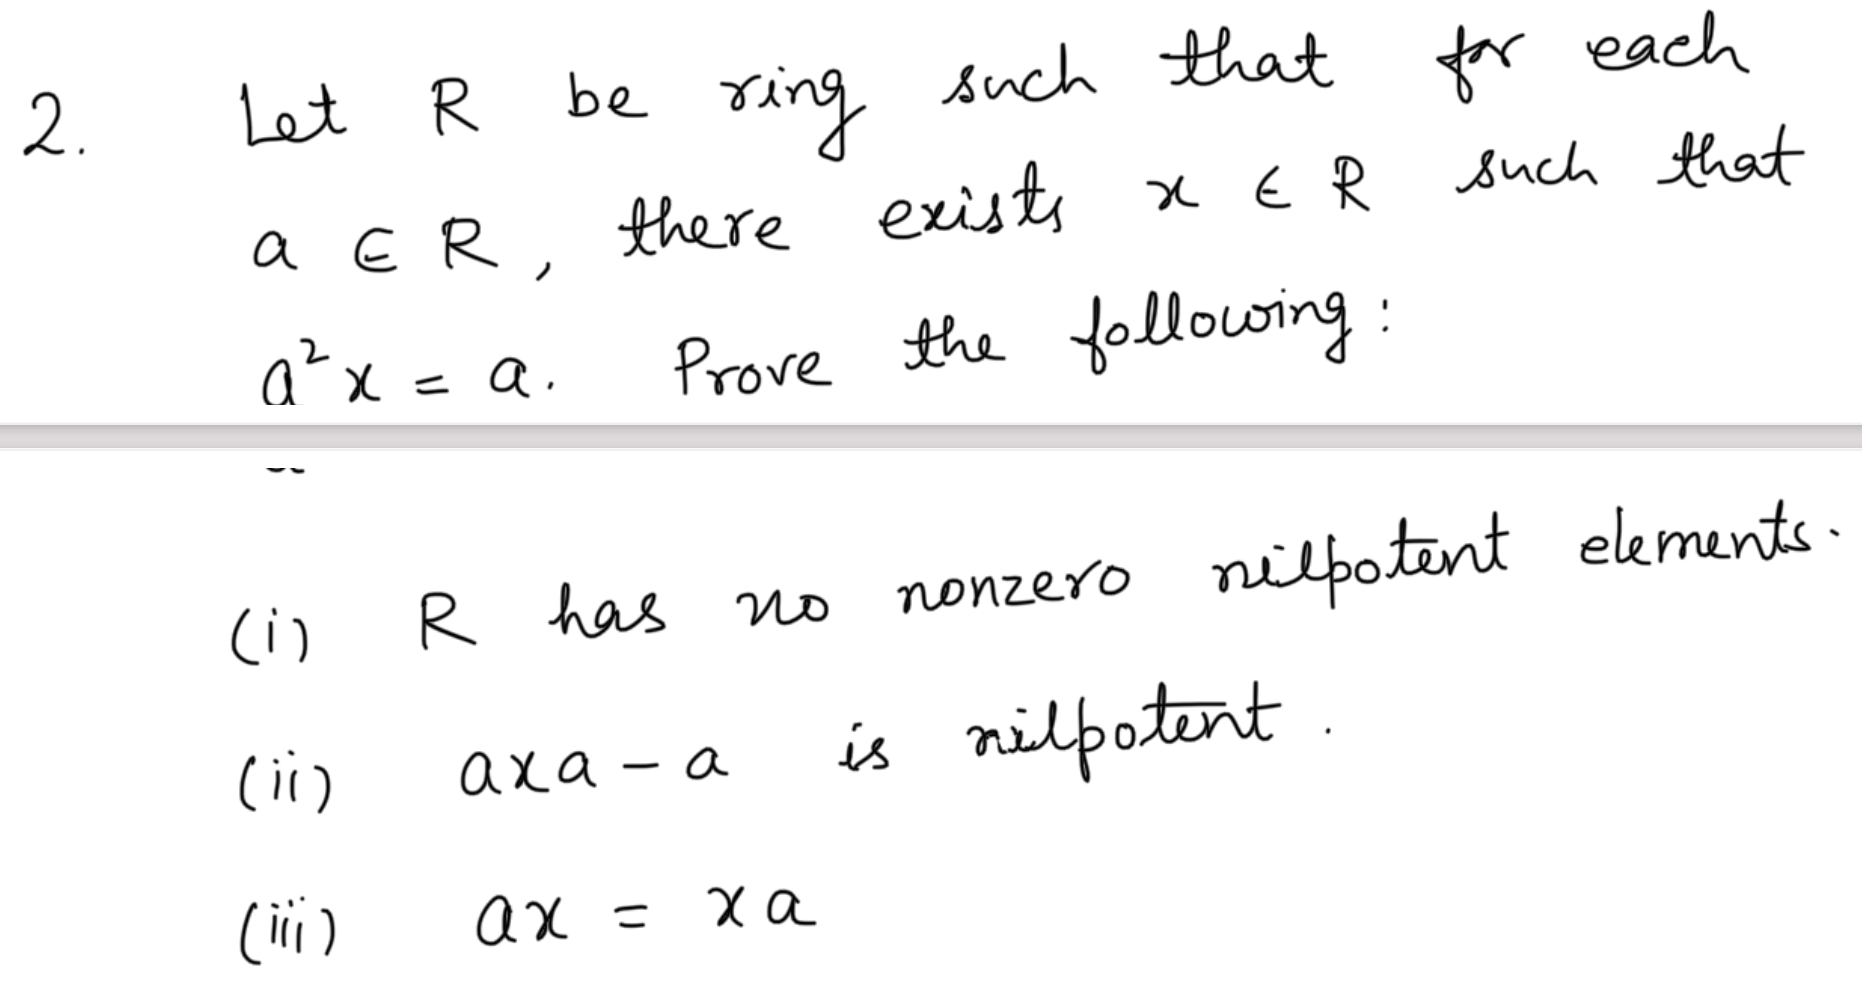 2. Let R be ring such that for each
a ∈ R, there exists x ∈ R such that
a²x = a. Prove the following:
(i) R has no nonzero nilpotent elements.
(ii) axa - a is nilpotent.
(iii) ax = xa